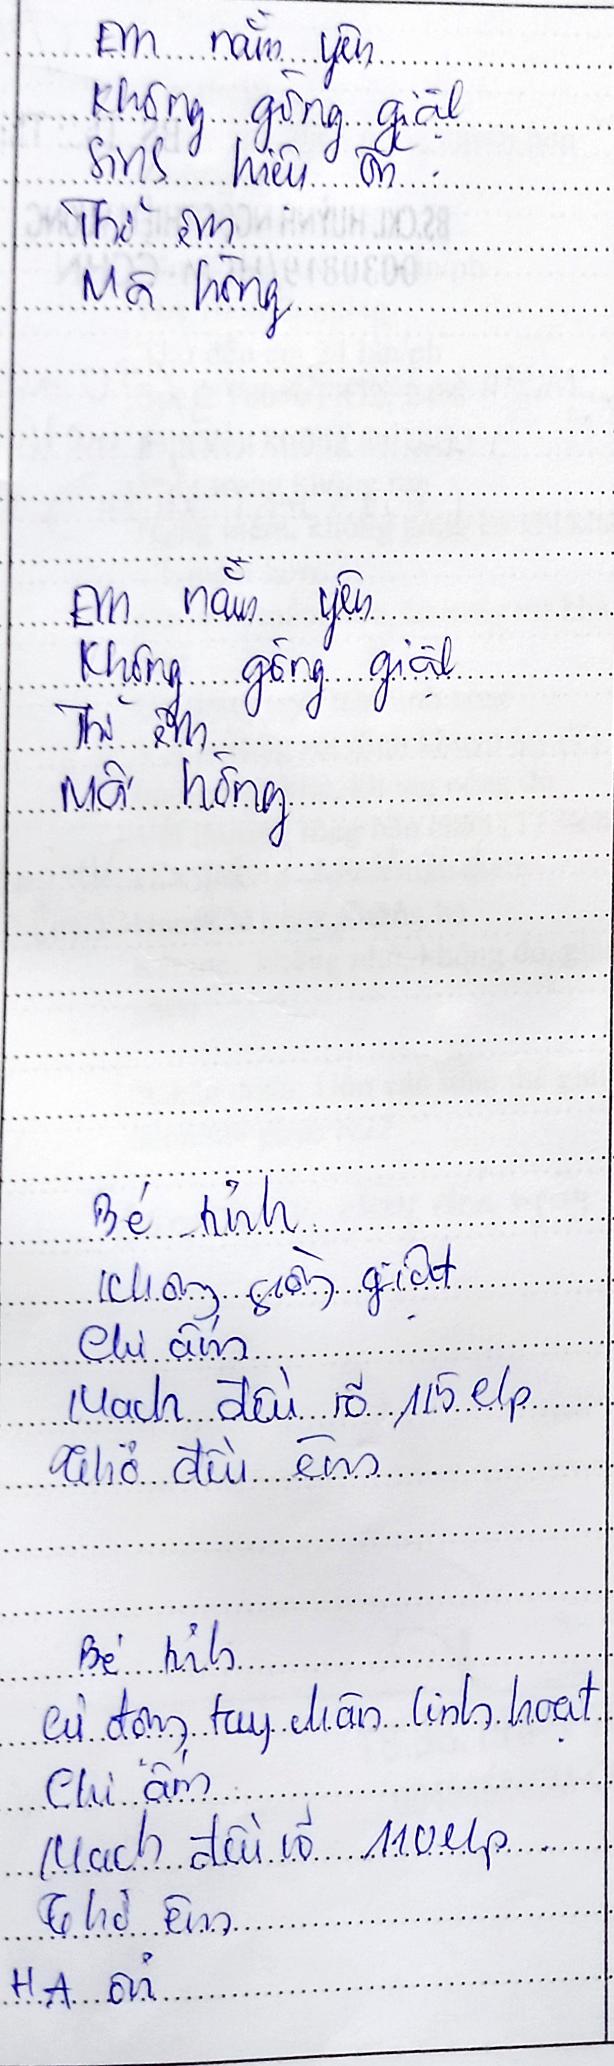 Em nằm yên
Không gồng giật
Sinh hiệu ổn
Thở êm
Môi hồng
Em nằm yên
Không gồng giật
Thở êm
Môi hồng
Bé tỉnh
Không gồng giật
Chi ấm
Mạch đều rõ 115 l/p
Thở đều êm
Bé tỉnh
Cử động tay chân linh hoạt
Chi ấm
Mạch đều rõ 110 l/p
Thở êm
HA ổn